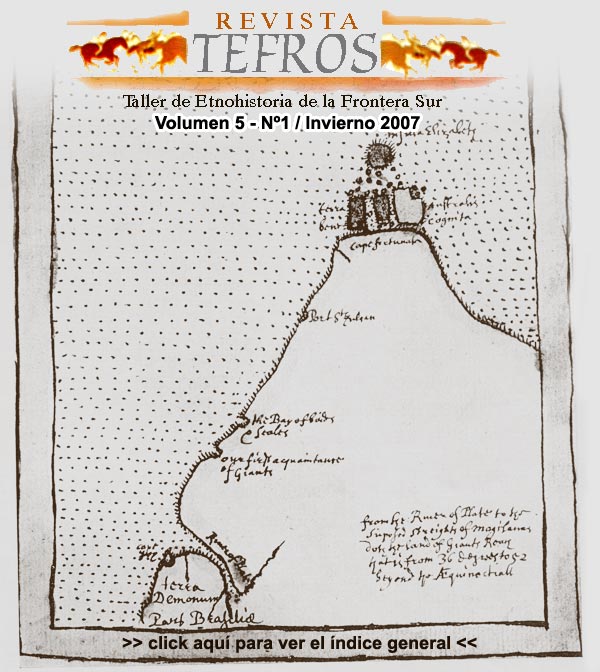 REVISTA
TEFROS
Taller de Etnohistoria de la Frontera Sur
Volumen 5 - Nº1 / Invierno 2007
Elizabeth
terra
Australis
bene
Cognita
Cape fortunate
Port St Julian
the Bay of
Seales
our first acquaintance
of Giants
from the River of Plate to the
Suposd Streights of magilanas
doth the land of Giants
from 36 degrees to 52
beyond the Æquinoctiall
River of
terra
Demonum
Pars Brasiliæ
>> click aquí para ver el índice general <<